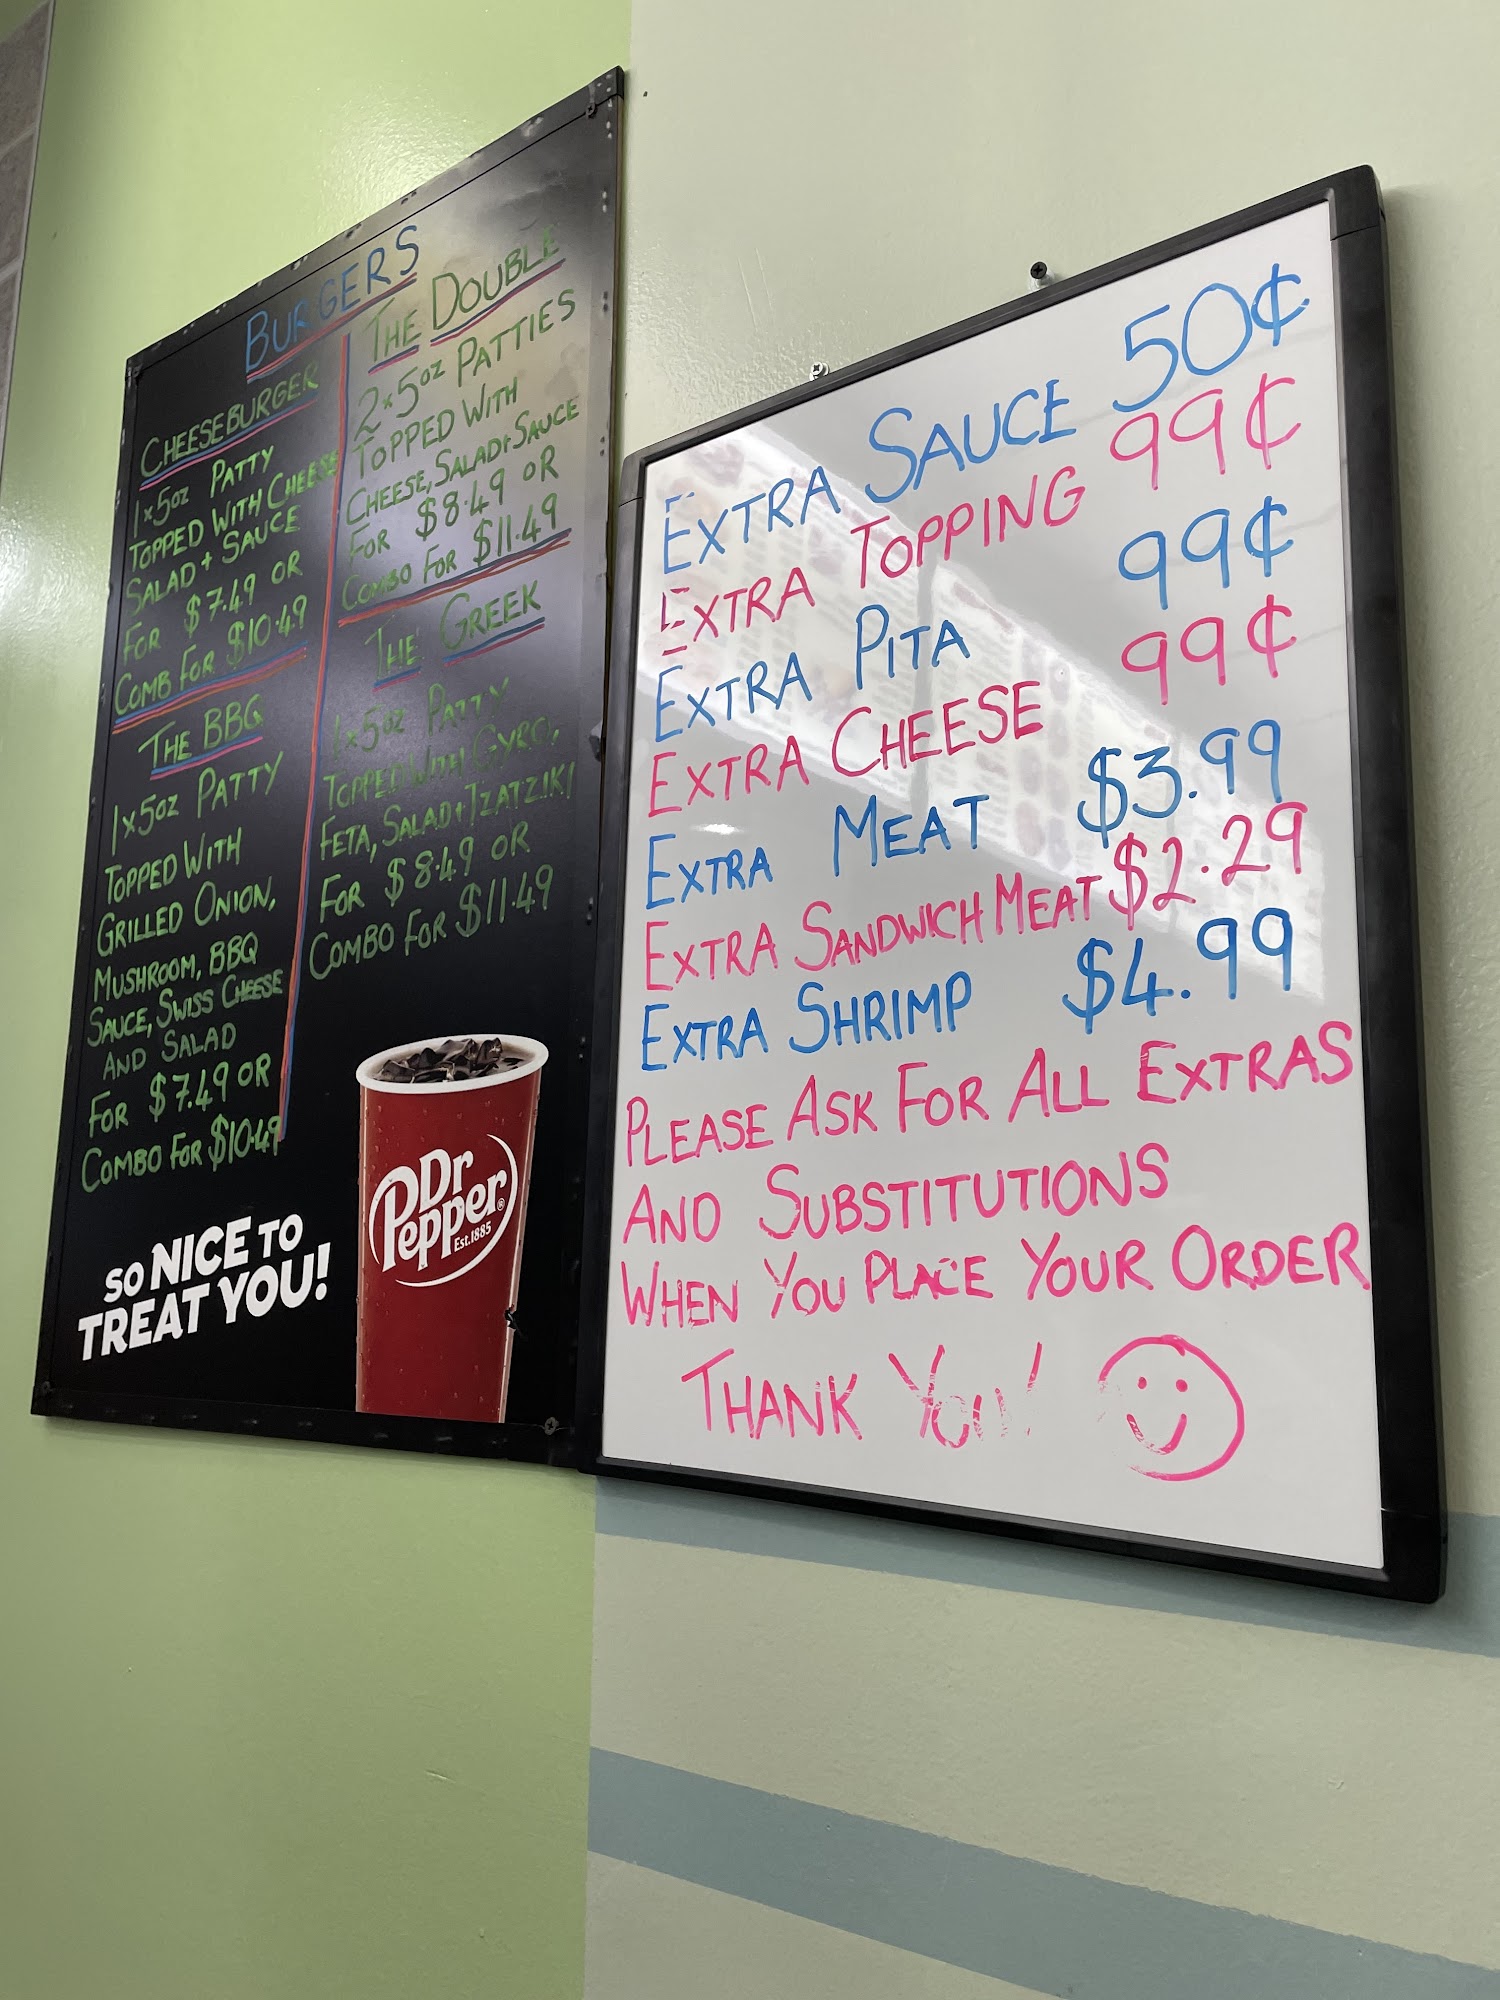 BURGERS
CHEESEBURGER
1x5oz PATTY
TOPPED WITH CHEESE
SALAD + SAUCE
FOR $7.49 OR
COMB FOR $10.49
THE BBQ
1x5oz PATTY
TOPPED WITH
GRILLED ONION,
MUSHROOM, BBQ
SAUCE, SWISS CHEESE
AND SALAD
FOR $7.49 OR
COMBO FOR $10.49
THE DOUBLE
2x5oz PATTIES
TOPPED WITH
CHEESE, SALAD+SAUCE
FOR $8.49 OR
COMBO FOR $11.49
THE GREEK
1x5oz PATTY
TOPPED WITH GYRO,
FETA, SALAD+TZATZIKI
FOR $8.49 OR
COMBO FOR $11.49
SO NICE TO
TREAT YOU!
Dr
Pepper®
Est.1885
EXTRA SAUCE 50¢
EXTRA TOPPING 99¢
EXTRA PITA 99¢
EXTRA CHEESE 99¢
EXTRA MEAT $3.99
EXTRA SANDWICH MEAT $2.29
EXTRA SHRIMP $4.99
PLEASE ASK FOR ALL EXTRAS
AND SUBSTITUTIONS
WHEN YOU PLACE YOUR ORDER
THANK YOU!